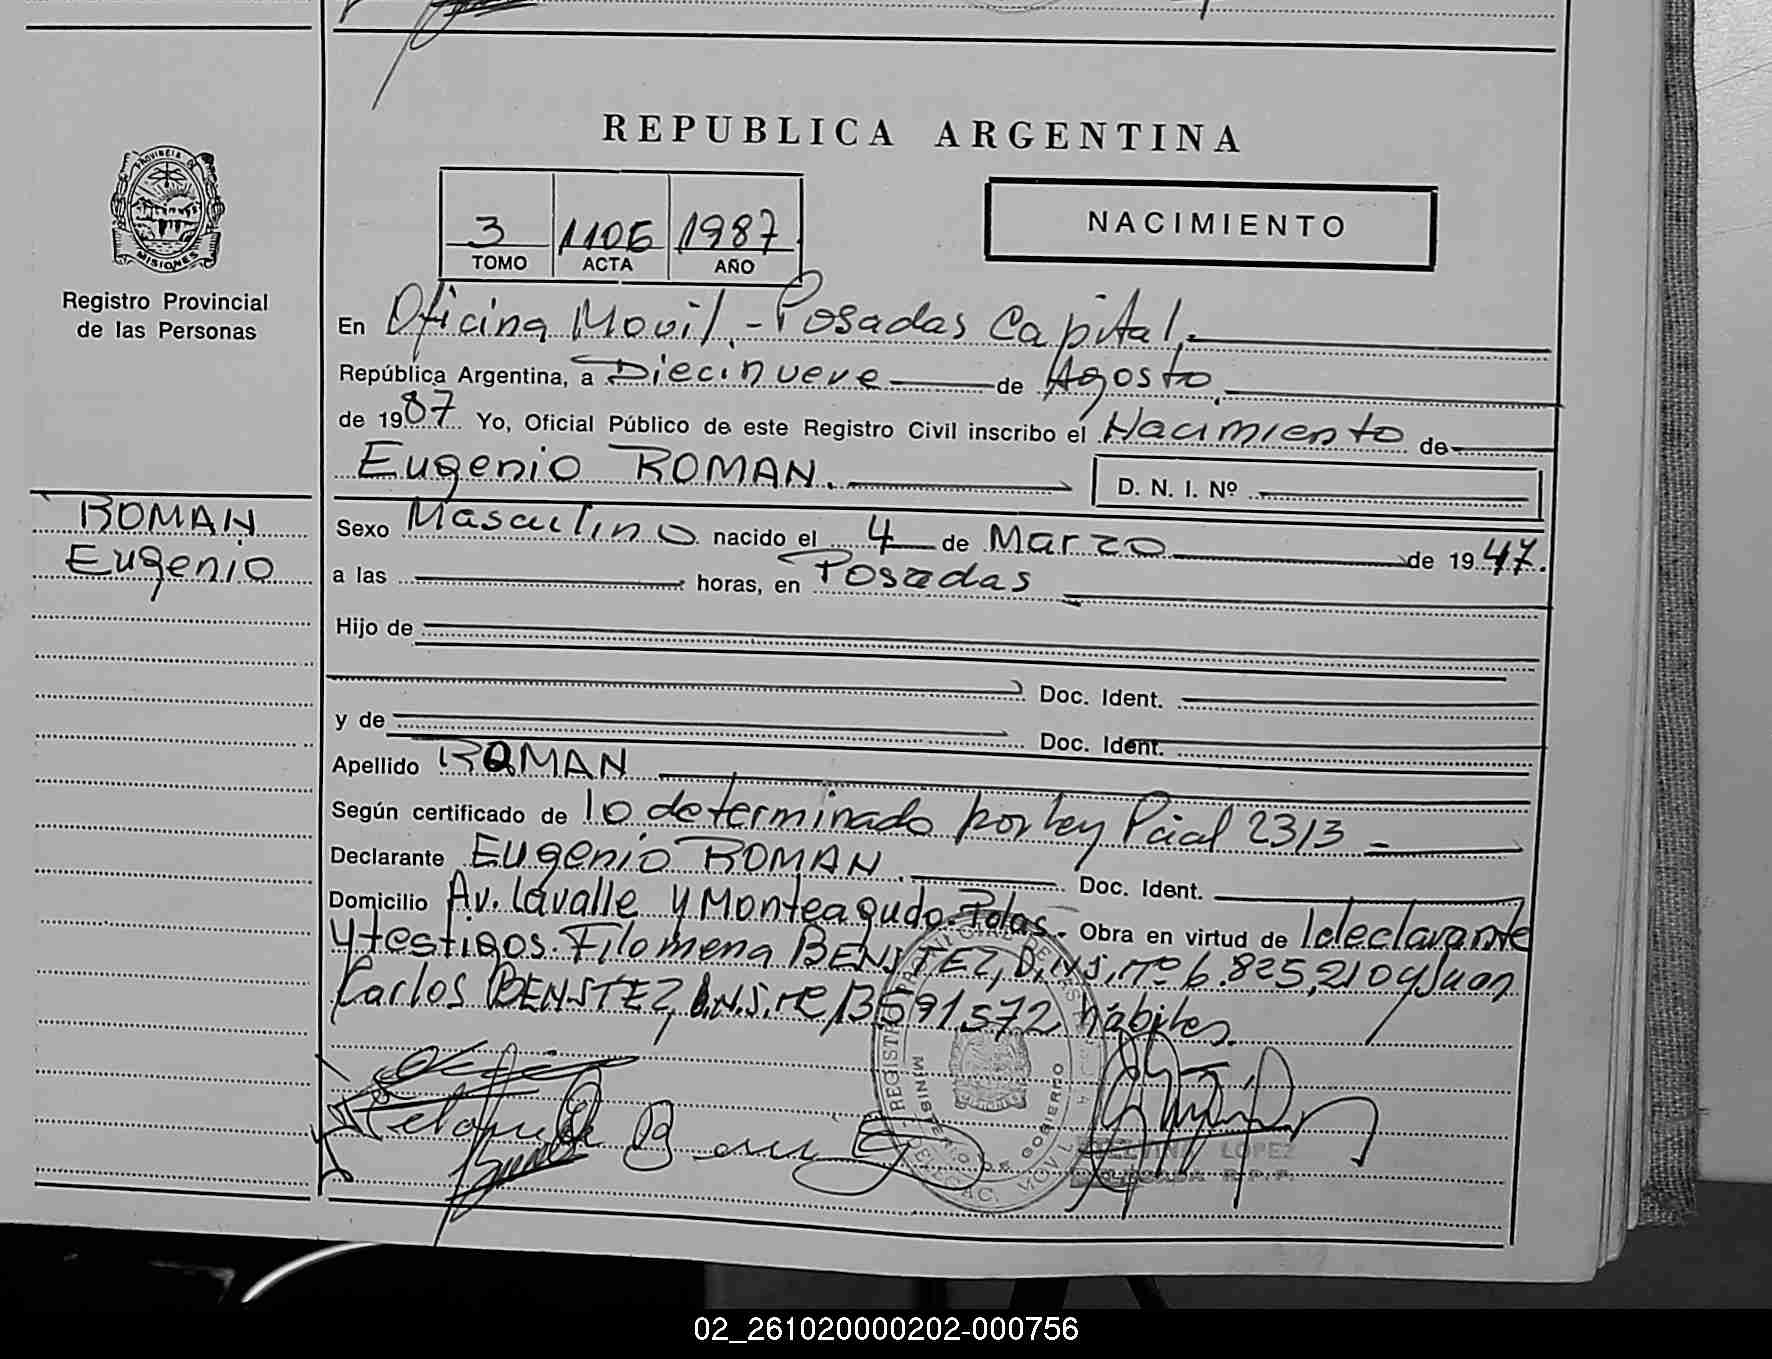 REPUBLICA ARGENTINA
PROVINCIA DE
MISIONES
Registro Provincial
de las Personas
3 1106 1987
TOMO ACTA AÑO
NACIMIENTO
En Oficina Movil.-Posadas Capital.-
República Argentina, a Diecinueve de Agosto
de 1987 Yo, Oficial Público de este Registro Civil inscribo el Nacimiento de
Eugenio ROMAN. D. N. I. Nº
ROMAN
Eugenio
Sexo Masculino nacido el 4 de Marzo de 1947.
a las horas, en Posadas
Hijo de
Doc. Ident.
y de Doc. Ident.
Apellido ROMAN
Según certificado de lo determinado por ley Pcial 2313 -
Declarante Eugenio ROMAN. Doc. Ident.
Domicilio Av. Lavalle y Monteagudo-Pdas.- Obra en virtud de ldeclarante
y testigos. Filomena BENITEZ, D.N.I, nº 6.825,210 y Juan
Carlos BENITEZ, D.N.I. nº 13591572 hábiles.
MINISTERIO DE GOBIERNO
LOPEZ
DELEGADA R.P.P.
02_261020000202-000756